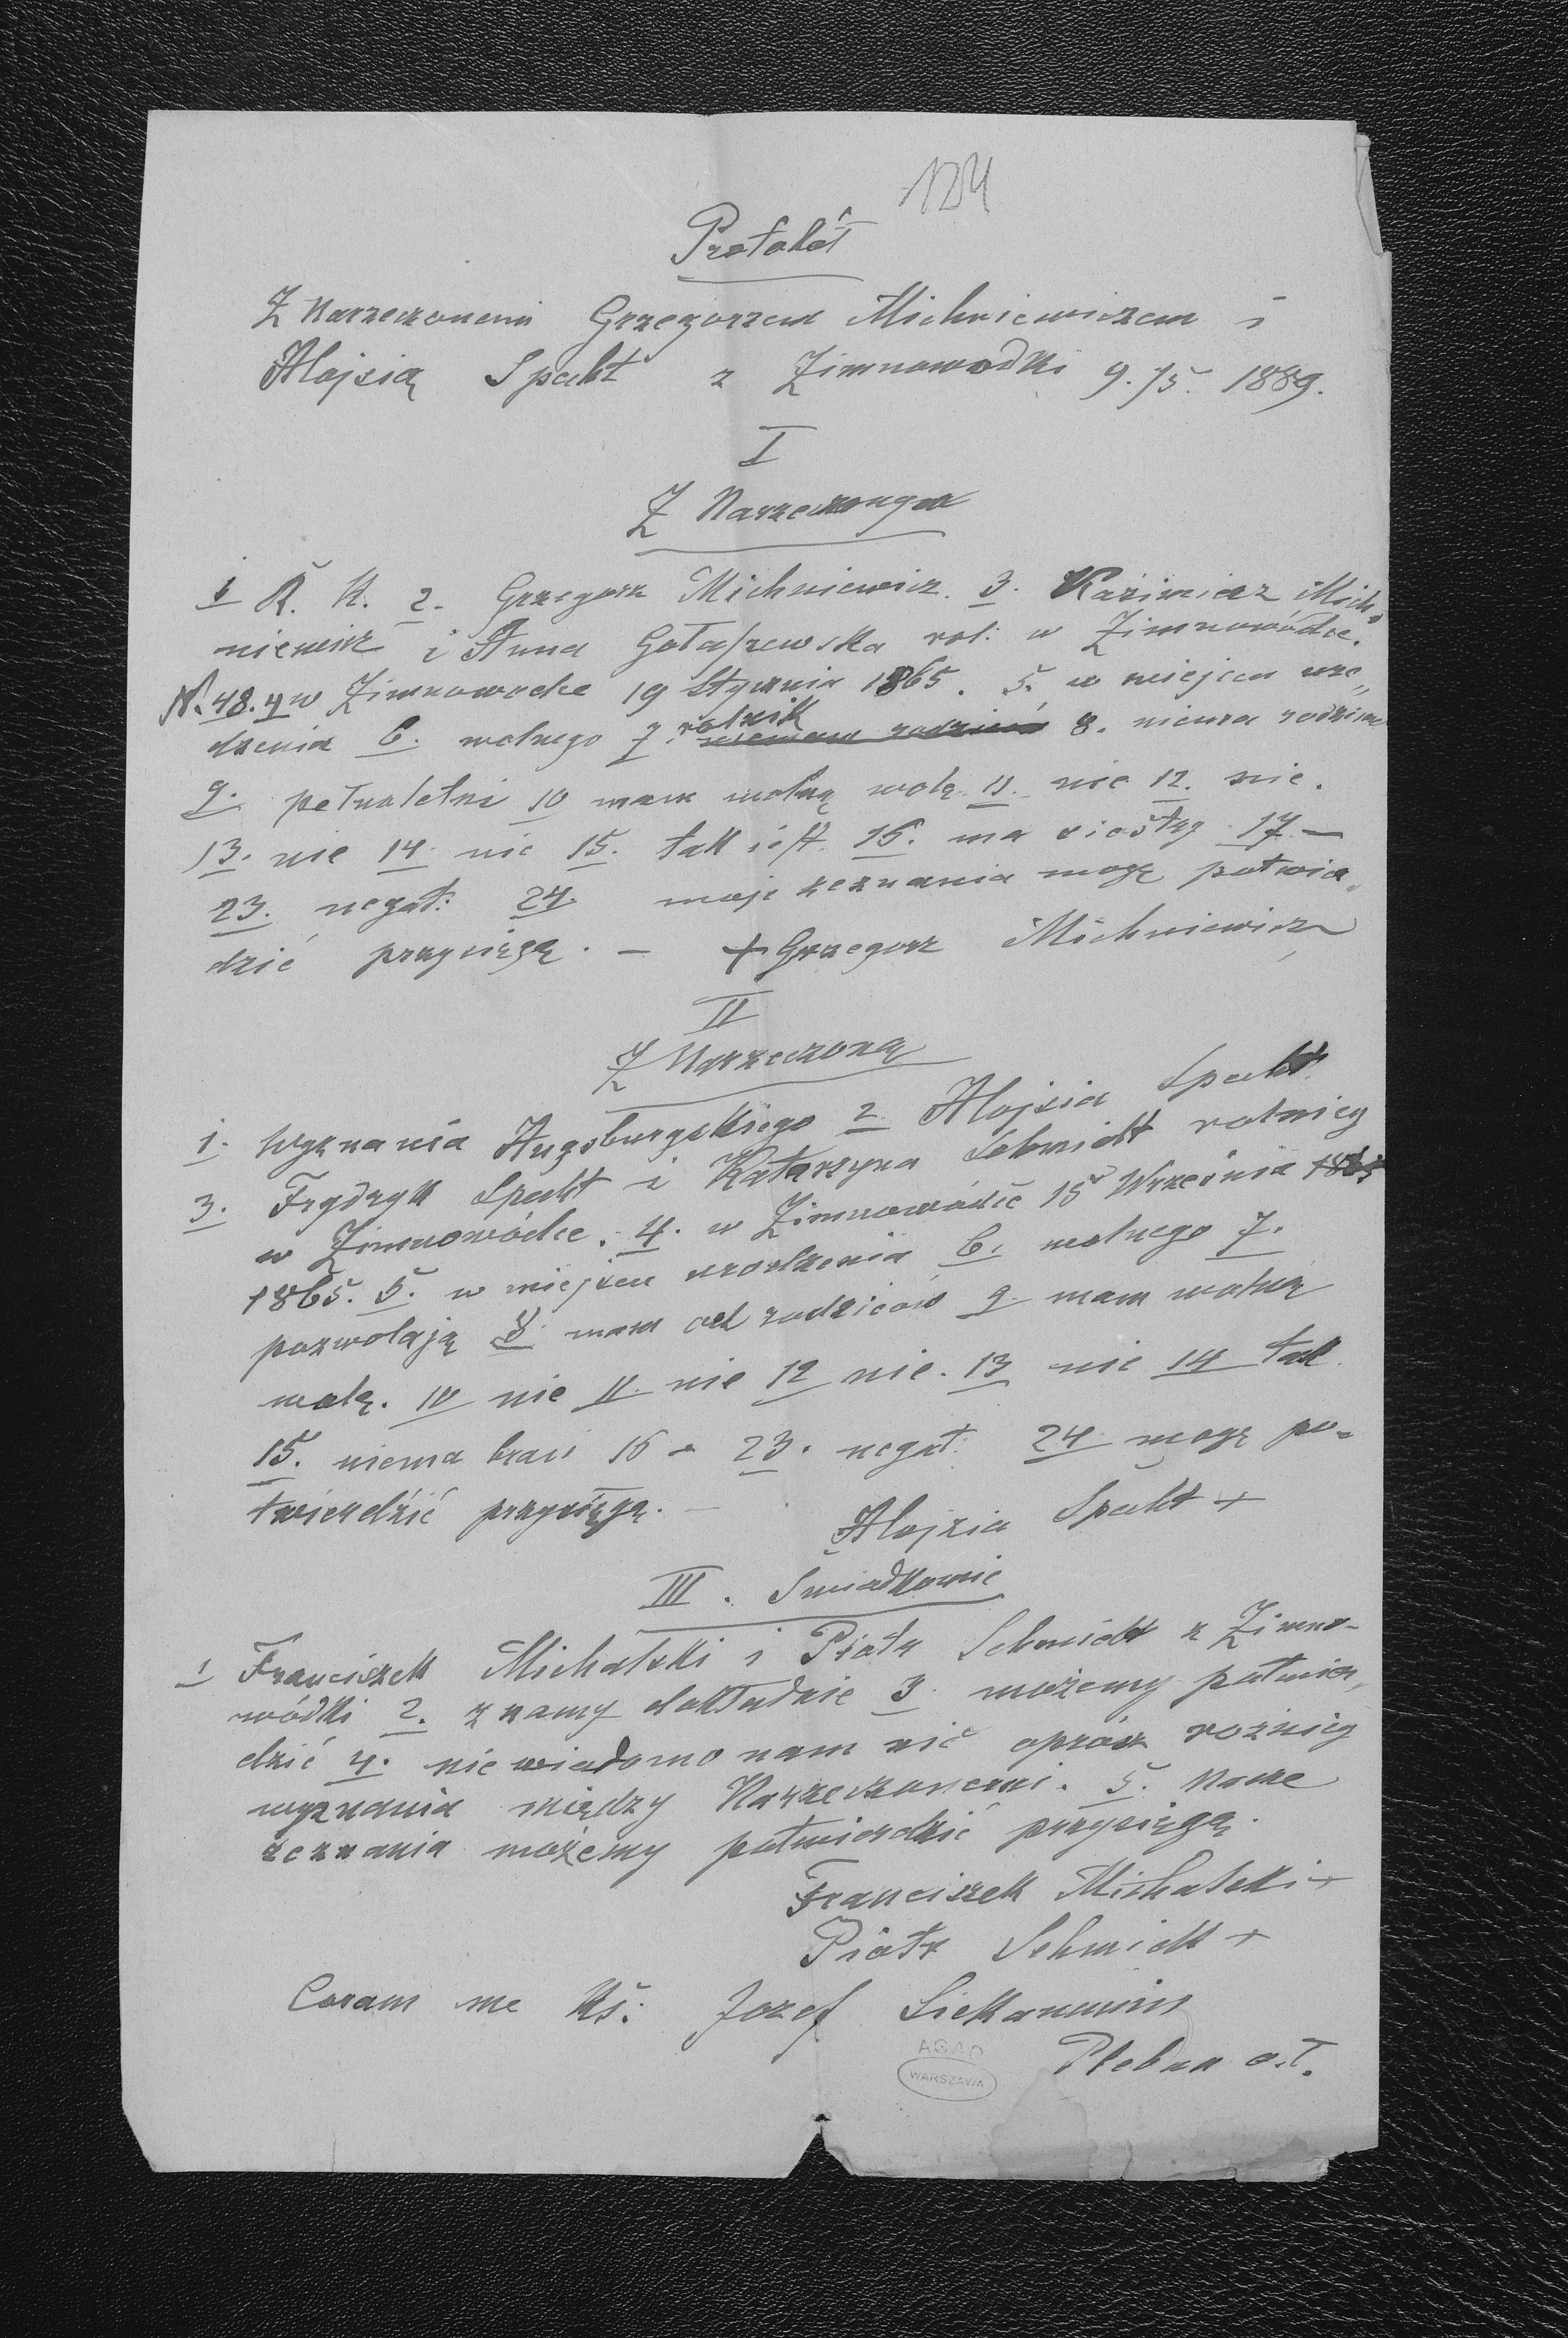 124
Protokół
Z Narzeczonemi Grzegorzem Michniewiczem i
Alojzią Specht z Zimnowodki 9./5. 1889.
I
Z Narzeczonym
1 R. K. 2. Grzegorz Michniewicz. 3. Kaźimierz Mich
niewicz i Anna Gołaszewska rol: w Zimnowódce.
N. 48. 4 w Zimnowodce 19 Stycznia 1865. 5. w miejscu uro„
dzenia 6. wolnego 7. rolnik niemam rodziców 8. niema rodziców
9. pełnoletni 10 mam wolną wolę 11. nie 12. nie.
13. nie 14 nie 15. tak jest 16. ma siostrę 17 —
23. negat: 24. moje zeznania mogę potwier„
dzić przysięgą. — + Grzegorz Michniewicz
II
Z Narzeczoną
1. Wyznania Augsburgskiego 2 Alojzia Specht
3. Frydryk Specht i Katarzyna Schmidt rolnicy
w Zimnowódce. 4. w Zimnowódce 15 Września 1865
1865. 5. w miejscu urodzenia 6. wolnego 7.
pozwolają 8 mam od rodziców 9. mam wolną
wolę. 10 nie 11. nie 12 nie. 13 nie 14 tak
15. niema braci 16 - 23. negat: 24 mogę po=
twierdzić przysięgą. —
Alojzia Specht +
III. Świadkowie
1 Franciszek Michalski i Piotr Schmidt z Zimno-
wódki 2. znamy dokładnie 3. możemy potwier„
dzić 4. niewiadomo nam nic oprócz rożnicy
wyznania między Narzeczonemi. 5. Nasze
zeznania możemy potwierdzić przysięgą.
Franciszek Michalski +
Piotr Schmidt +
Coram me Ks: Jozef
Pleban o.ł.
AGAD
WARSZAWA